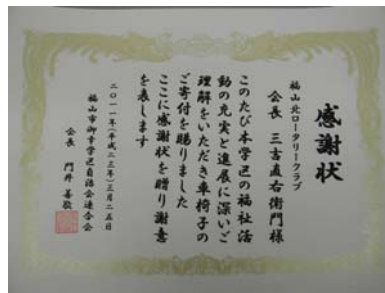 感謝状
福山北ロータリークラブ
会長 三吉直右衛門様
このたび本学区の福祉活
動の充実と進展に深いご
理解をいただき車椅子の
ご寄付を賜りました
ここに感謝状を贈り謝意
を表します
二〇一一年(平成二三年)三月二五日
福山市御幸学区自治会連合会
会長 門井善敬